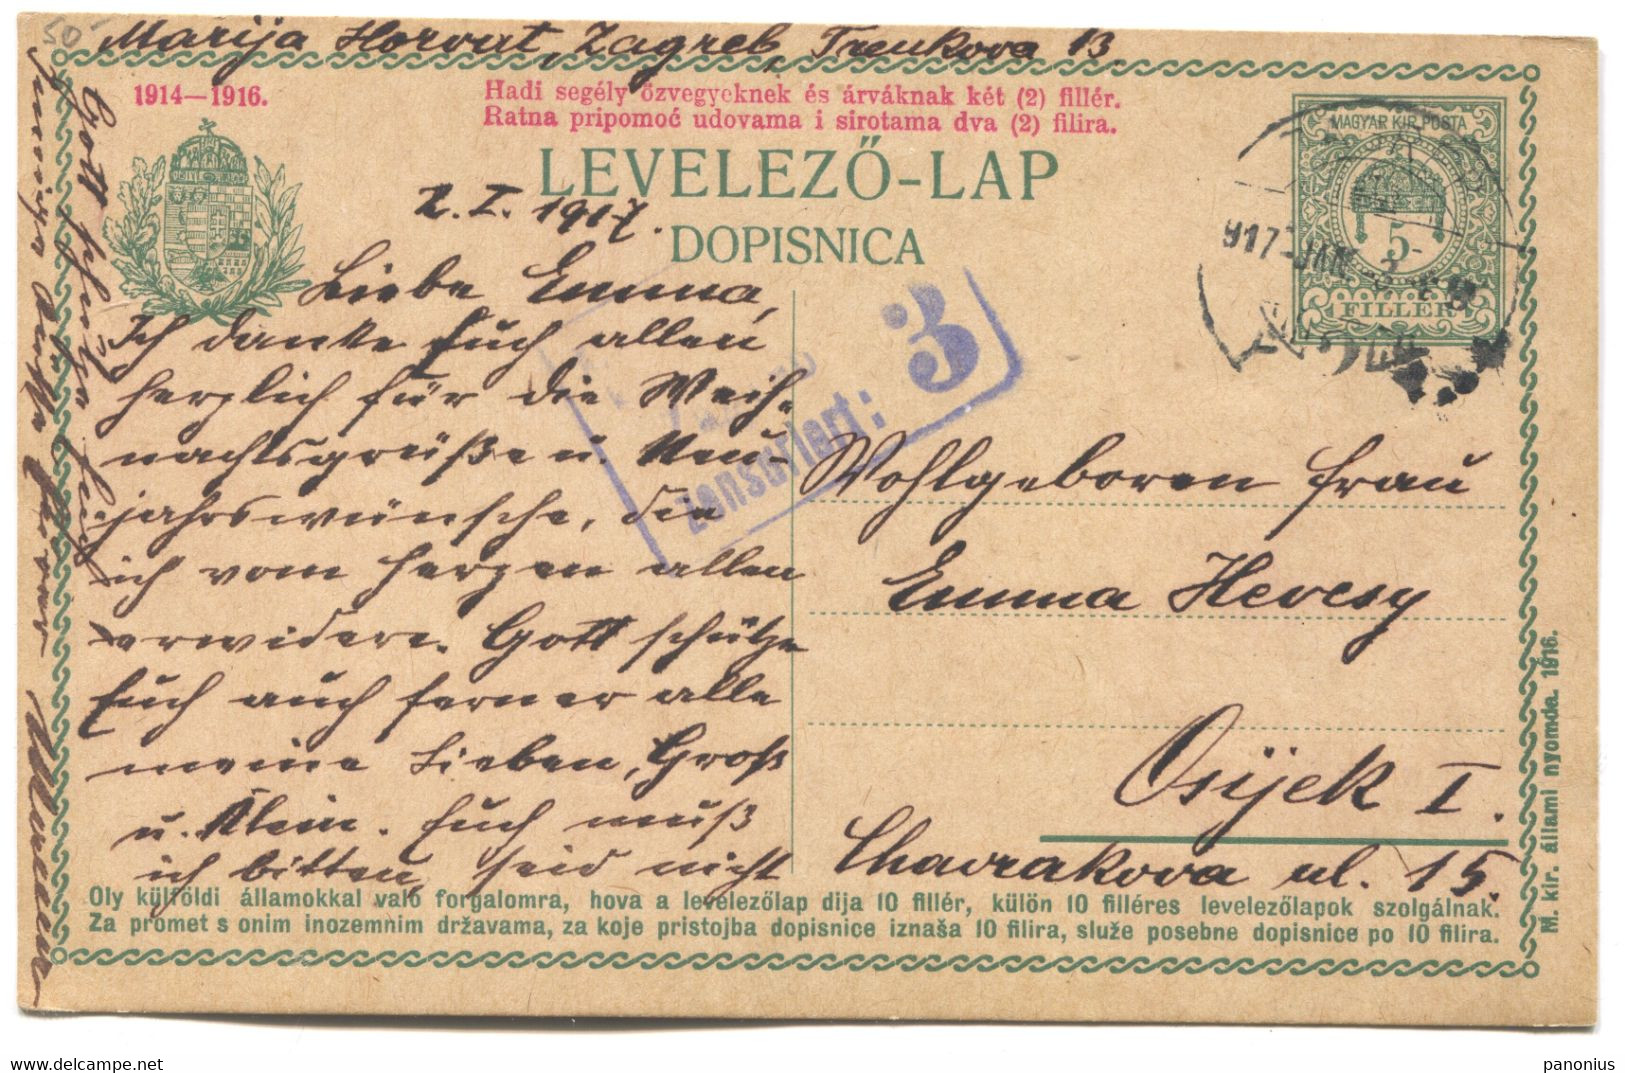 50
Marija Horvat, Zagreb, Trenkova 13.
1914—1916.
Hadi segély özvegyeknek és árváknak két (2) fillér.
Ratna pripomoć udovama i sirotama dva (2) filira.
LEVELEZŐ-LAP
DOPISNICA
MAGYAR KIR. POSTA
5
FILLER
917 JAN
2. I. 1917.
Liebe Emma,
Ich danke Euch allen
herzlich für die Weih-
nachtsgrüße u. Neu-
jahrswünsche, die
ich vom Herzen allen
erwidere. Gott schütze
Euch auch ferner alle
meine Lieben, Groß
u. Klein. Euch muß
ich bitten, seid nicht
Gott schütze
Zensuriert: 3
Wohlgeboren Frau
Emma Hevesy
Osijek I.
Chavrakova ul. 15.
Oly külföldi államokkal való forgalomra, hova a levelezőlap dija 10 fillér, külön 10 filléres levelezőlapok szolgálnak.
Za promet s onim inozemnim državama, za koje pristojba dopisnice iznaša 10 filira, služe posebne dopisnice po 10 filira.
M. kir. állami nyomda. 1916.
delcampe.net
panonius